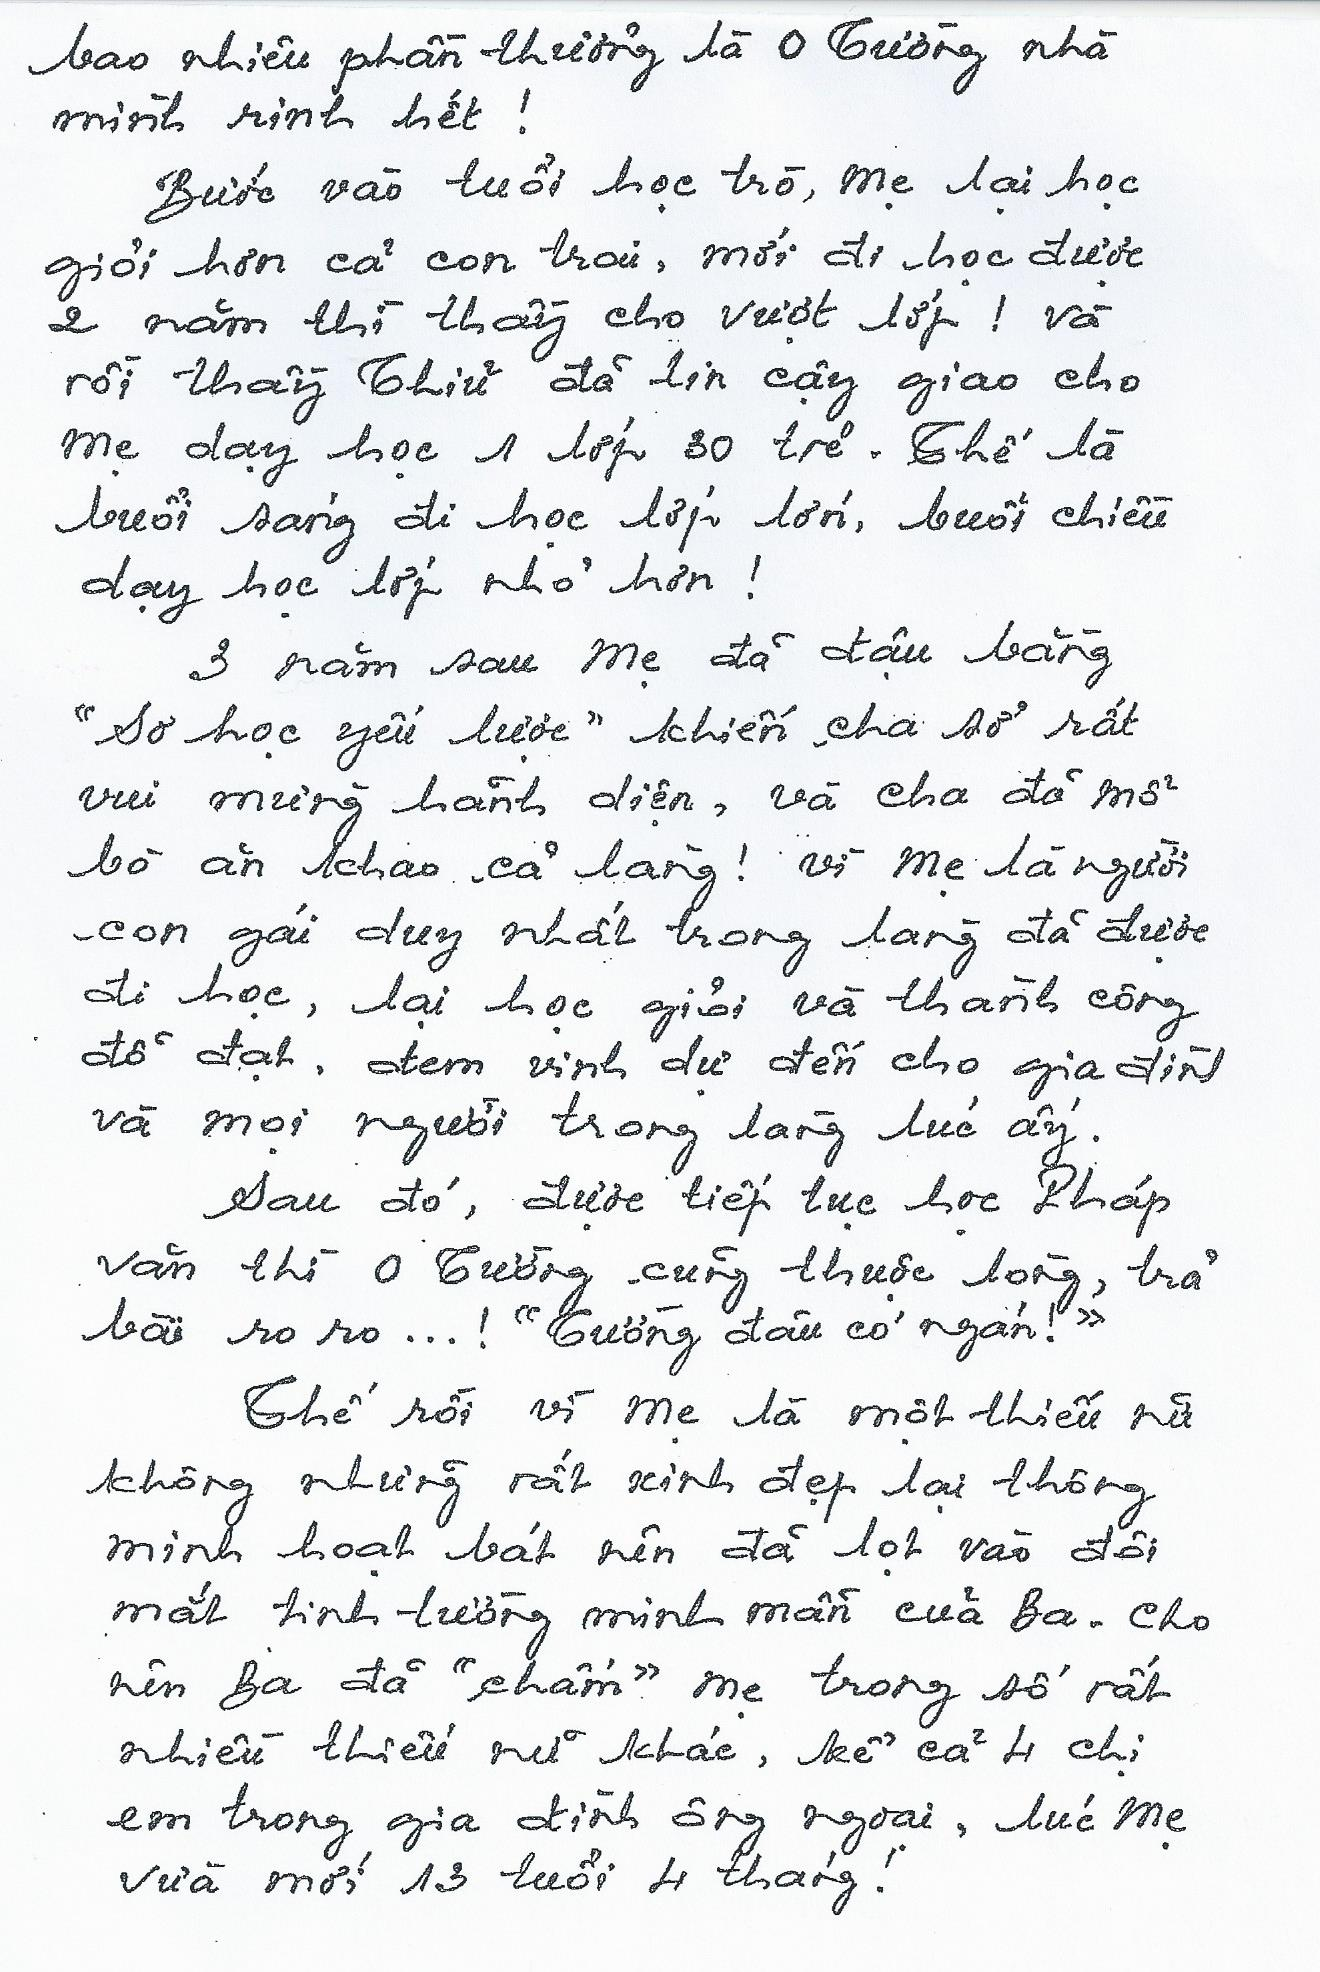 bao nhiêu phần thưởng là O Tường nhà
mình rinh hết !
Bước vào tuổi học trò, Mẹ lại học
giỏi hơn cả con trai, mới đi học được
2 năm thì thầy cho vượt lớp ! Và
rồi thầy Thiư đã tin cậy giao cho
Mẹ dạy học 1 lớp 30 trẻ. Thế là
buổi sáng đi học lớp lớn, buổi chiều
dạy học lớp nhỏ hơn !
3 năm sau Mẹ đã đậu bằng
“Sơ học yếu lược” khiến cha sở rất
vui mừng hãnh diện, và cha đã mổ
bò ăn khao cả làng ! vì Mẹ là người
con gái duy nhất trong làng đã được
đi học, lại học giỏi và thành công
đỗ đạt, đem vinh dự đến cho gia đình
và mọi người trong làng lúc ấy.
Sau đó, được tiếp tục học Pháp
văn thì O Tường cũng thuộc lòng, trả
bài ro ro ...! “Tường đâu có ngán!”
Thế rồi vì Mẹ là một thiếu nữ
không những rất xinh đẹp lại thông
minh hoạt bát nên đã lọt vào đôi
mắt tinh tường minh mẫn của Ba. Cho
nên Ba đã “chấm” Mẹ trong số rất
nhiều thiếu nữ khác, kể cả 4 chị
em trong gia đình ông ngoại, lúc Mẹ
vừa mới 13 tuổi 4 tháng !